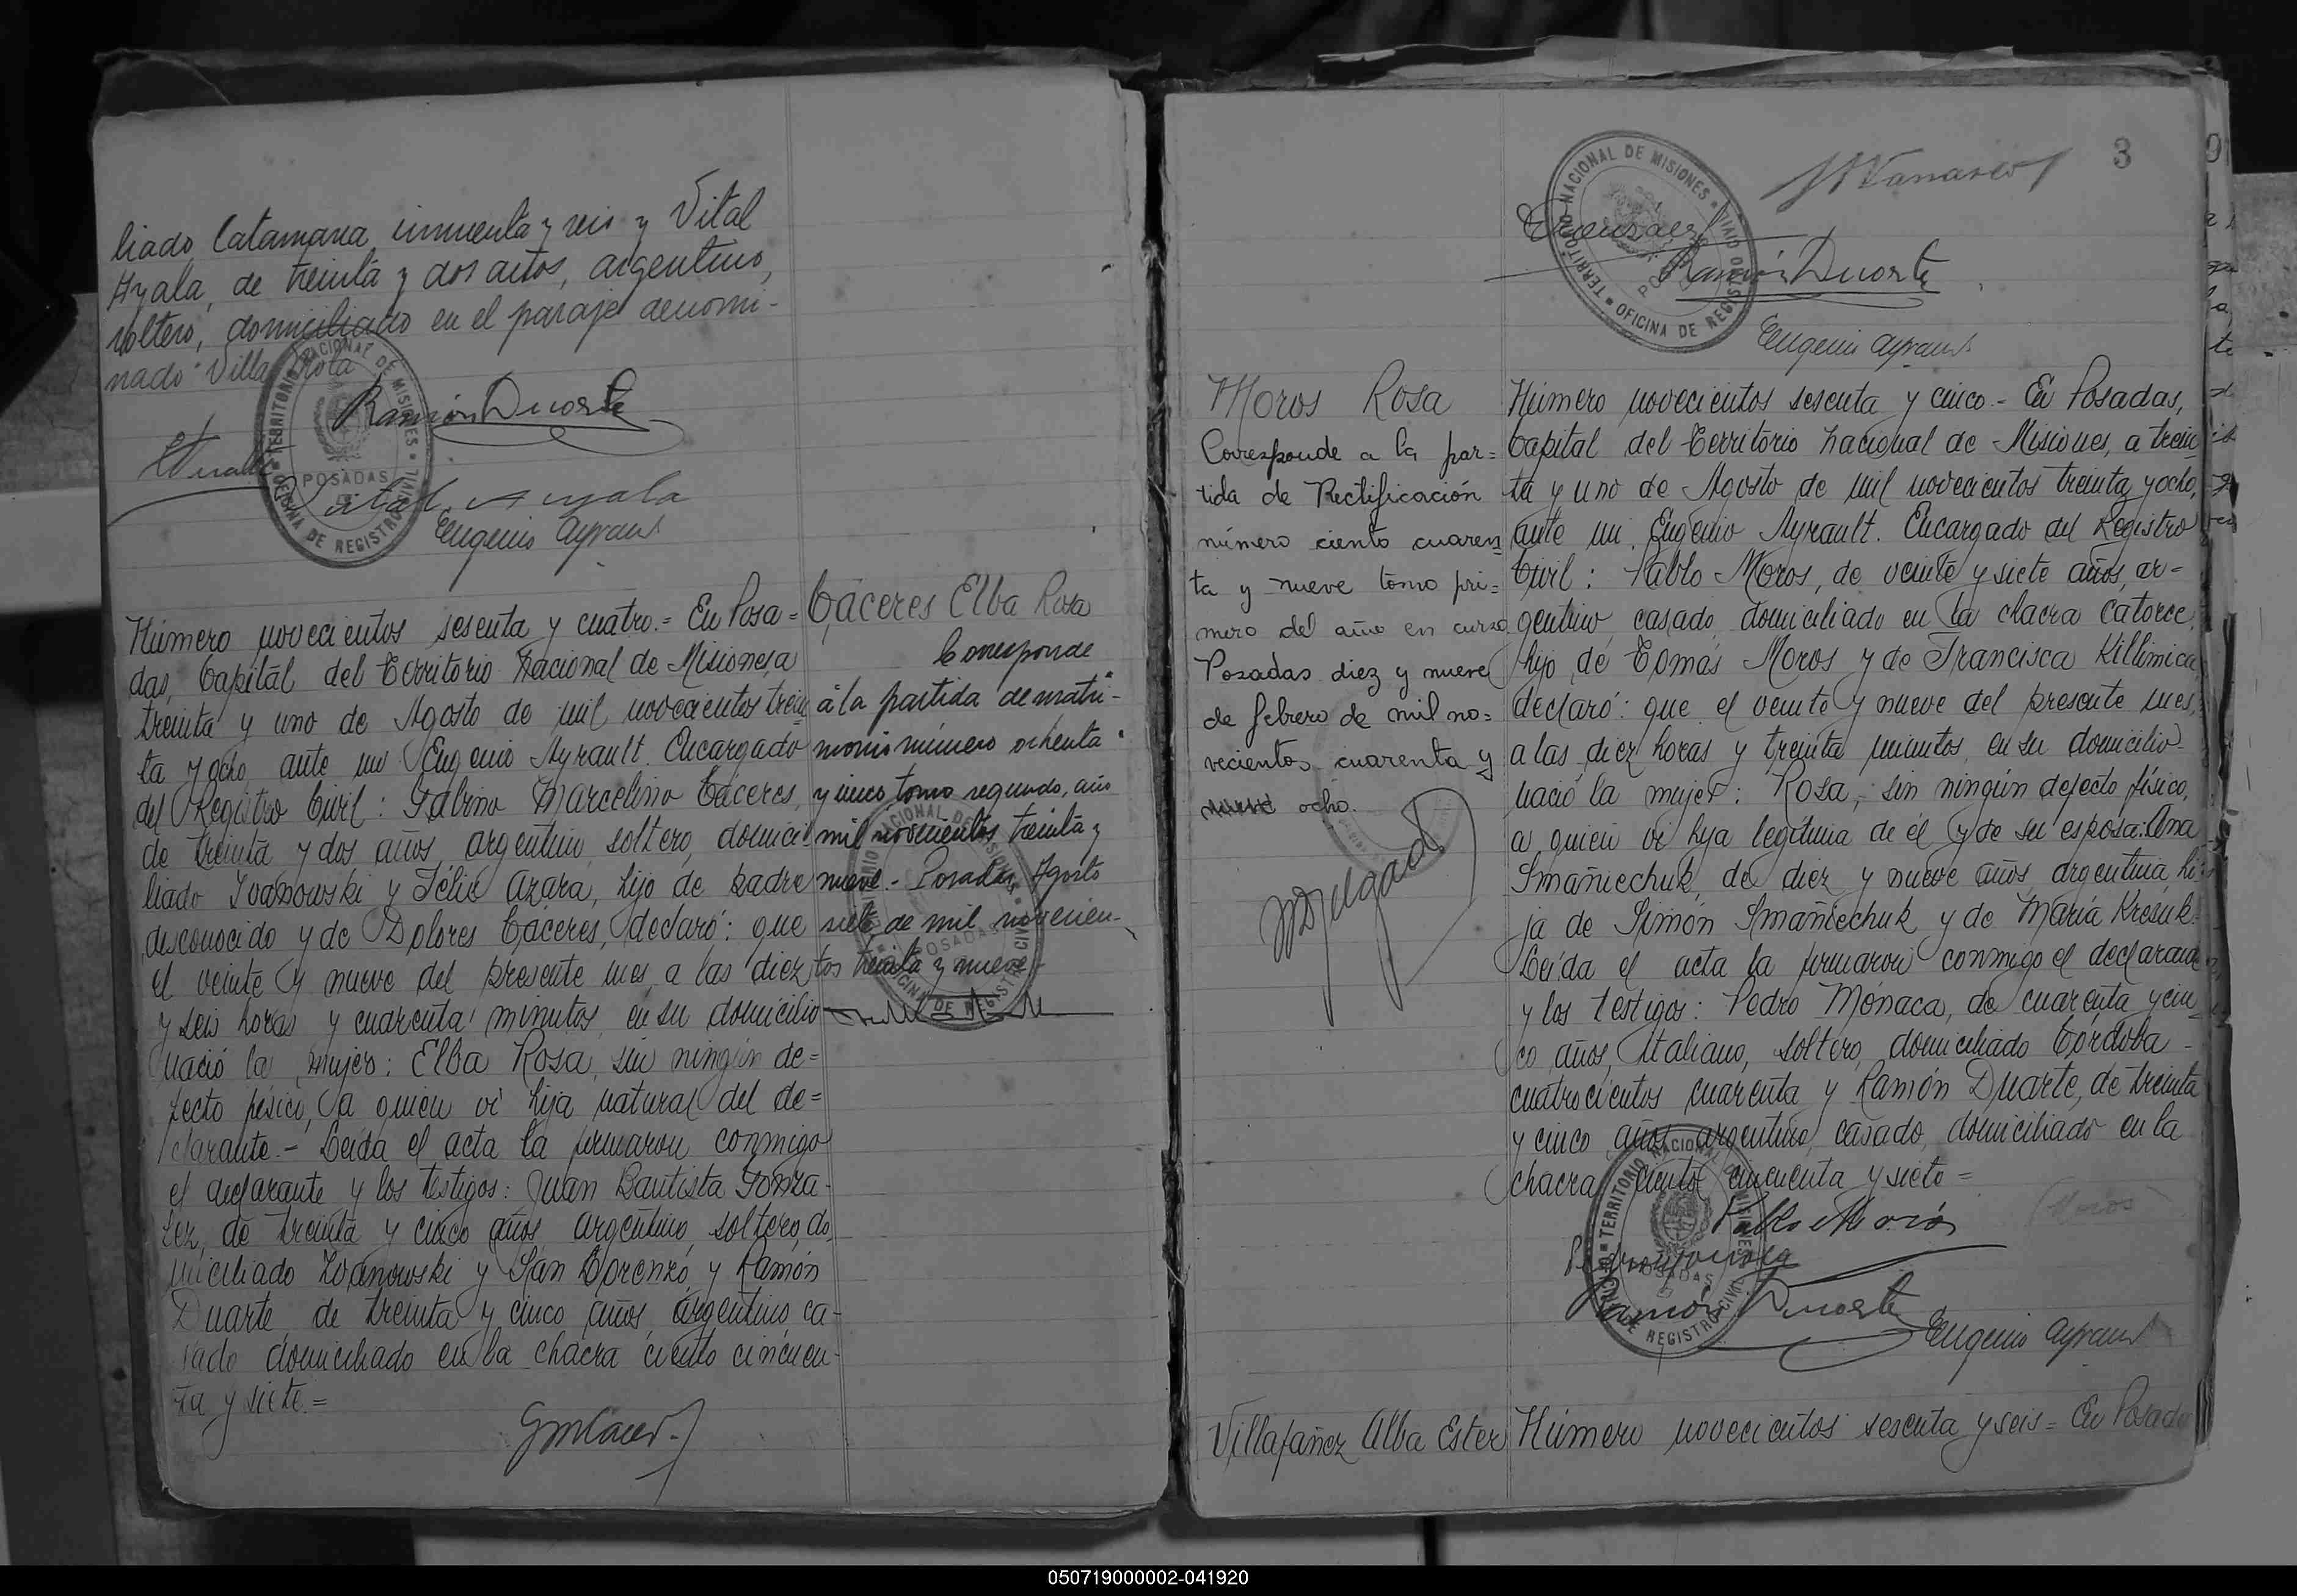 liado Catamarca cincuenta y seis y Vital
Ayala, de treinta y dos años, argentino,
soltero, domiciliado en el paraje denomi-
nado Villa Rota
Ramón Duarte
Vital Ayala
Eugenio Ayrault
TERRITORIO NACIONAL DE MISIONES
POSADAS
OFICINA DE REGISTRO CIVIL
Cáceres Elba Rosa
Corresponde
á la partida de matri-
monio número ochenta
y cinco tomo segundo, año
mil novecientos treinta y
nueve.- Posadas, Agosto
siete de mil novecien-
tos treinta y nueve
Número novecientos sesenta y cuatro.= En Posa=
das, Capital del Territorio Nacional de Misiones, a
treinta y uno de Agosto de mil novecientos trein
ta y ocho, ante mi Eugenio Ayrault. Encargado
del Registro Civil: Gabino Marcelino Cáceres,
de treinta y dos años, argentino, soltero, domici
liado Ivanowski y Félix Azara, hijo de padre
desconocido y de Dolores Cáceres, declaró: que
el veinte y nueve del presente mes, a las diez
y seis horas y cuarenta minutos, en su domicilio
nació la mujer: Elba Rosa, sin ningún de=
fecto físico, a quien vi hija natural del de=
clarante.- Leída el acta la firmaron conmigo
el declarante y los testigos: Juan Bautista Gonza-
lez, de treinta y cinco años, argentino, soltero, do
miciliado Ivanowski y San Lorenzo, y Ramón
Duarte de treinta y cinco años, argentino, ca-
sado domiciliado en la chacra ciento cincuen-
ta y siete.=
3
TERRITORIO NACIONAL DE MISIONES
OFICINA DE REGISTRO
Ramón Duarte
Eugenio Ayrault
Moros Rosa
Corresponde a la par=
tida de Rectificación
número ciento cuaren
ta y nueve tomo pri=
mero del año en curso
Posadas diez y nueve
de febrero de mil no=
vecientos cuarenta y
nueve ocho.
Número novecientos sesenta y cinco.- En Posadas,
Capital del Territorio Nacional de Misiones, a trein
ta y uno de Agosto de mil novecientos treinta y ocho,
ante mi Eugenio Ayrault. Encargado del Registro
Civil: Pablo Moros, de veinte y siete años, ar-
gentino, casado, domiciliado en la chacra catorce,
hijo de Tomás Moros y de Francisca Killimica,
declaró: que el veinte y nueve del presente mes,
a las diez horas y treinta minutos, en su domicilio
nació la mujer: Rosa, sin ningún defecto físico,
a quien vi hija legítima de él y de su esposa: Ana
Smañiechuk, de diez y nueve años, argentina, hi-
ja de Simón Smañiechuk y de María Kresuk.
Leída el acta la firmaron conmigo el declarante
y los testigos: Pedro Mónaca, de cuarenta y cin
co años, italiano, soltero, domiciliado Córdoba
cuatrocientos cuarenta y Ramón Duarte, de treinta
y cinco años, argentino, casado, domiciliado en la
chacra ciento cincuenta y siete=
Moros
TERRITORIO NACIONAL DE MISIONES
POSADAS
REGISTRO CIVIL
Ramón Duarte
Eugenio Ayrault
Villafáñez Alba Ester
Número novecientos sesenta y seis= En Posada
050719000002-041920